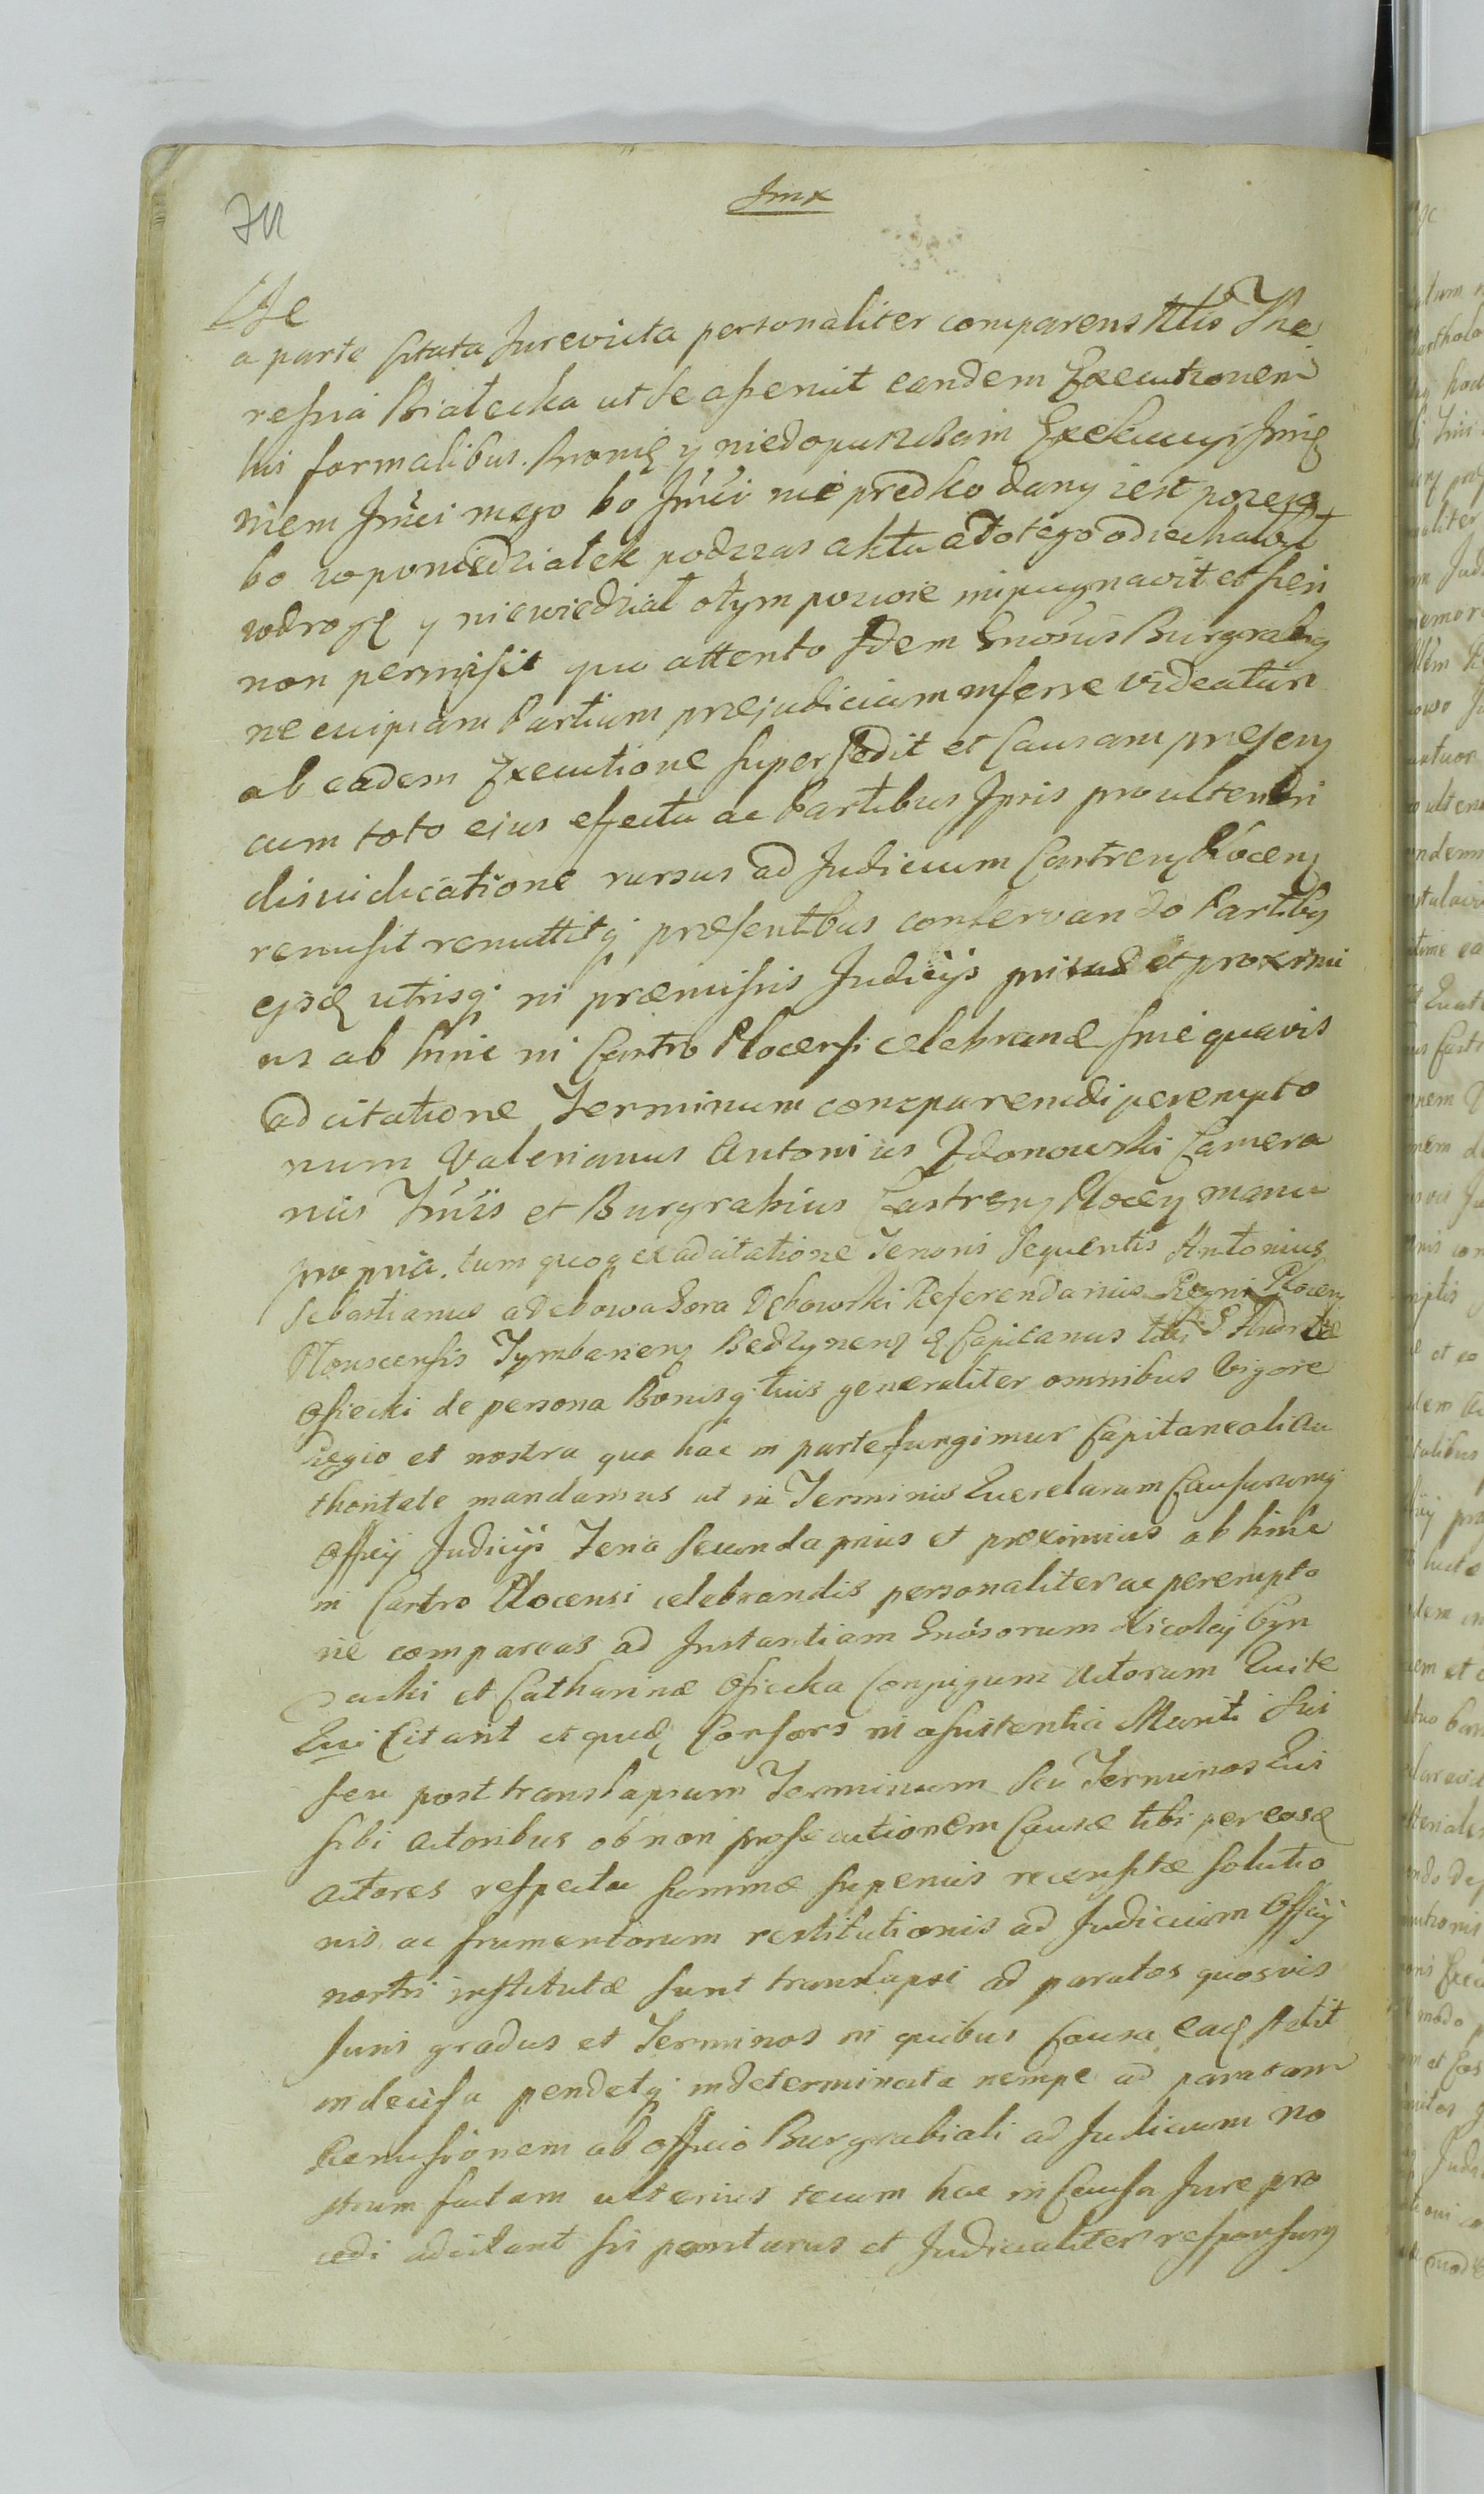 Jmx
a parte Citata Jurevicta personaliter comparens Nlis The
resina Białecka ut se aseruit eandem Executionem
his formalibus. Bronię y niedopuszczam Exekucyi Jmię
niem Jmci mego bo Jmci nie predko dany iest pozew
bo w poniedziałek podczas aktu a do tego odiechawszy
wdrogę y niewiedział o tym pozwie impugnavit et fieri
non permisit quo attento Idem Gnosus Burgrabig
ne cuipiam Partium præjudicium inferre videatur
ab eadem Executione supersedit et Causam præsentz
cum toto ejus effectu ac Partibus Ipsis pro ulteriori
disiudicatione rursus ad Judicium Castrenz Plocenz
remisit remittitq præsentibus conservando Partibus
ejsd utrisq in præmissis Judicijs prius et proximi
us ab hinc in Castro Plocensi celebrand sine quavis
adcitatione Terminum comparendi perempto
rium Valerianus Antonius Zdonowski Camera
rius et Burgrabius Castrenz Plocenz manu
propria. tum quoq ex adcitatione Tenoris Sequentis Antonius
Sebastianus a Debowa Gora Dębowski Referendarius Regni Plocenz
Plonscensis Tymbarcenz Bedzynenz & Capitanus tibi G.
Osiecki de persona Bonisq tuis generaliter omnibus Vigore
Regio et nostra qua hac in parte fungimur Capitaneali Au
thoritate mandamus ut in Terminis Querelarum Causarumq
Officij Judicijs Feria Secunda prius et proximius ab hinc
in Castro Plocensi celebrandis personaliter ac perempto
rie compareas ad Instantiam Gnosorum Nicolaj Cyn
dacki et Catharinæ Osiecka Conjugum Actorum Qui te
Qui Citant et quæd Consors in assistentia Mariti Sui
seu post translapsum Terminum seu Terminos Qui
sibi Actoribus ob non prosecutionem Causæ tibi per eosd
Actores respectu summæ superius recensitæ solutio
nis ac frumentorum restitutionis ad Judicium Officij
nostri institutæ sunt translapsi ad paratos quosvis
Juris gradus et Terminos in quibus Causa ead stetit
indecisa pendetq indeterminata nempe ad paratam
Remissionem ab Officio Burgrabiali ad Judicium no
strum factam ulterius tecum hac in Causa Jure pro
cedi adcitant sis pariturus et Judicialiter responsurg